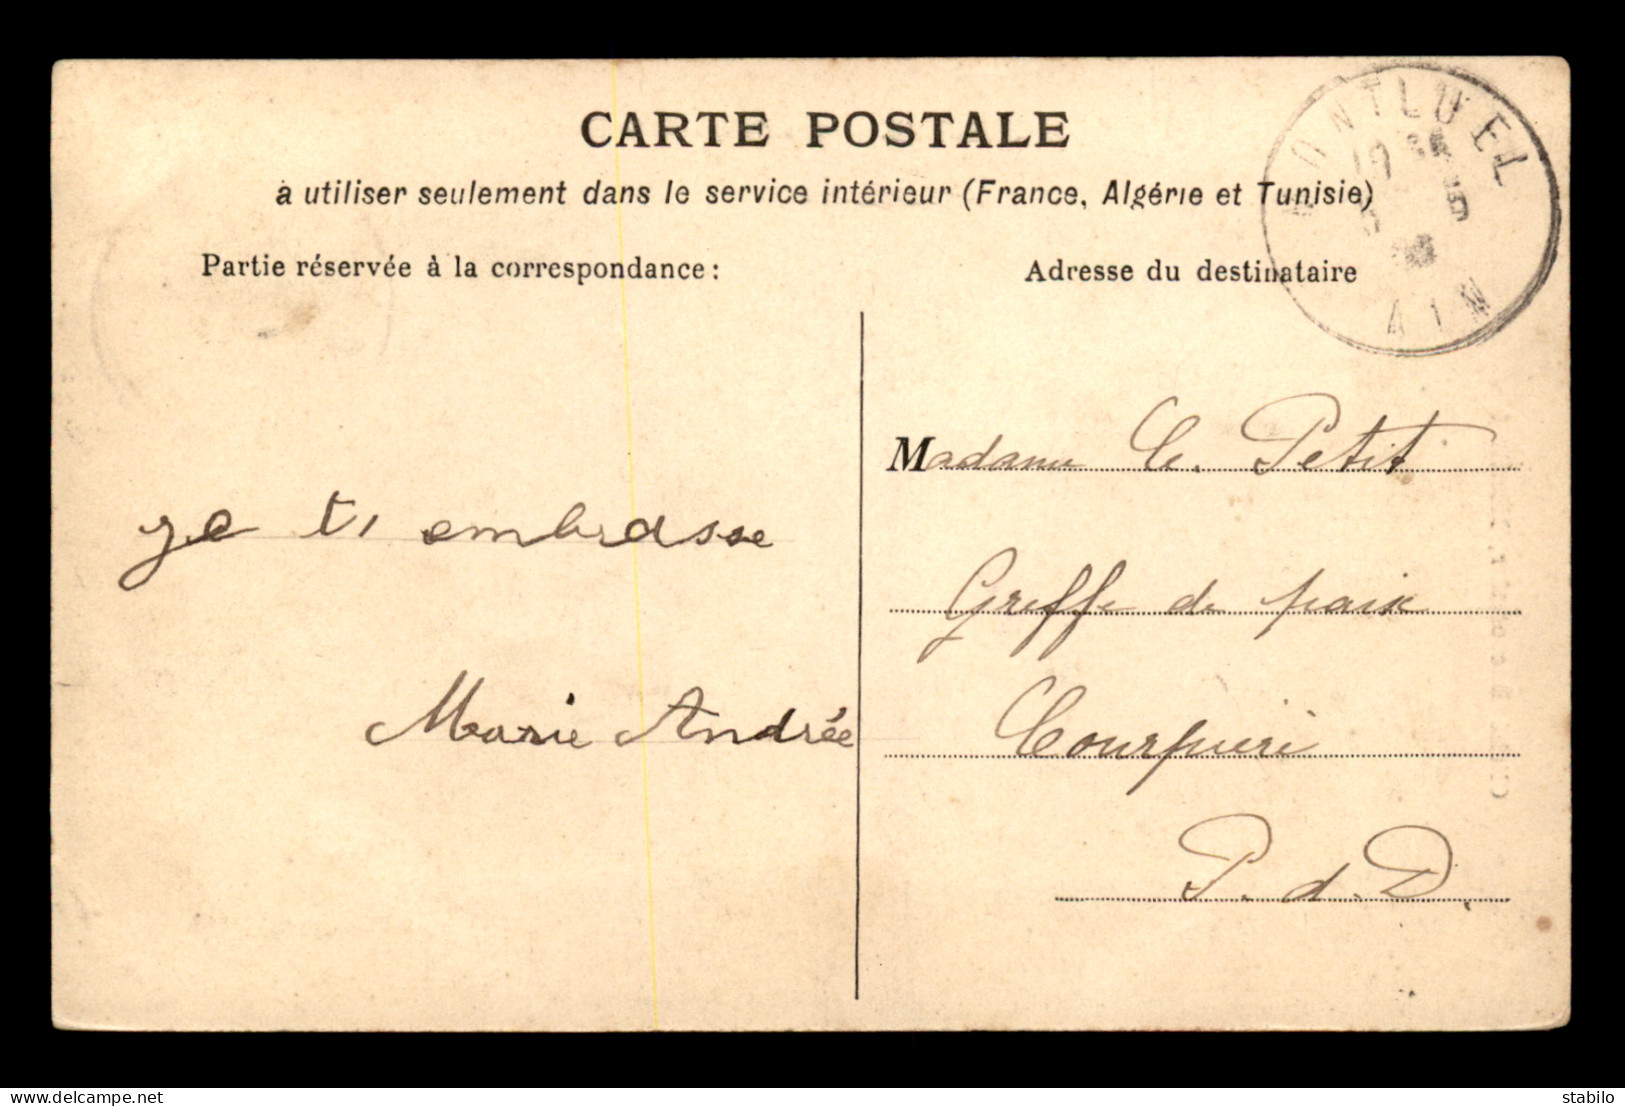 CARTE POSTALE
à utiliser seulement dans le service intérieur (France, Algérie et Tunisie)
Partie réservée à la correspondance :
Adresse du destinataire
MONTLUEL
AIN
je ti embrasse
Marie Andrée
Madame C. Petit
Greffe de paix
Courpière
P. d. D.
delcampe.net
stabilo